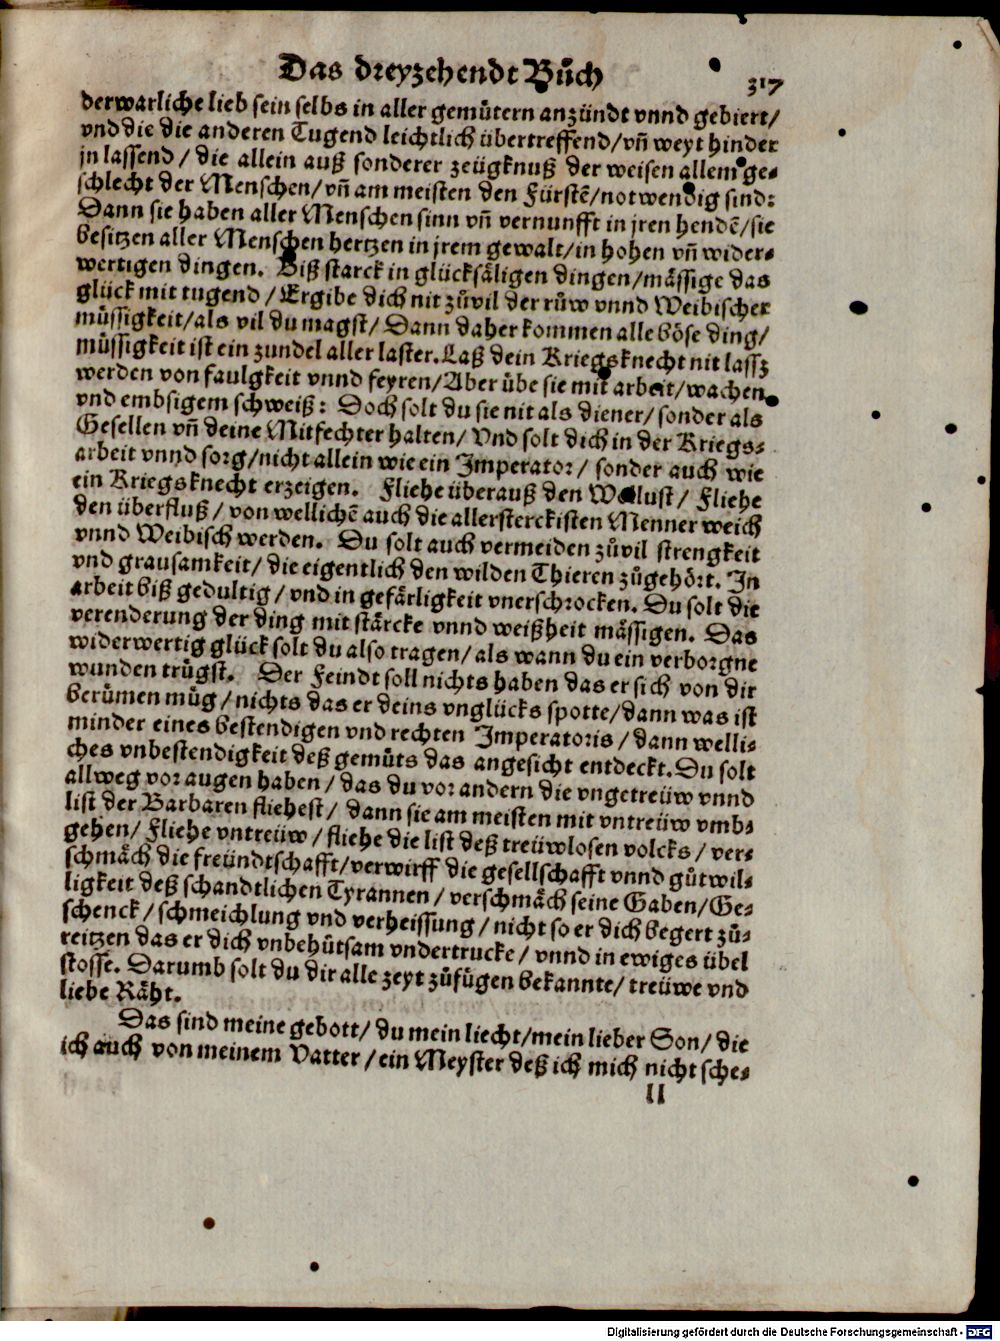 Das dreyzehendt Bůch
317
derwarliche lieb sein selbs in aller gemütern anzündt vnnd gebiert/
vnd die die anderen Tugend leichtlich übertreffend/vñ weyt hinder
jn lassend / die allein auß sonderer zeügknuß der weisen allem ge-
schlecht der Menschen/vñ am meisten den Fürstẽ/notwendig sind:
Dann sie haben aller Menschen sinn vñ vernunfft in jren hendẽ/sie
besitzen aller Menschen hertzen in jrem gewalt/in hohen vñ wider-
wertigen dingen. Biß starck in glücksäligen dingen/mässige das
glück mit tugend / Ergibe dich nit zůvil der růw vnnd Weibischer
müssigkeit/als vil du magst/ Dann daher kommen alle böse ding/
müssigkeit ist ein zundel aller laster. Laß dein Kriegsknecht nit lassz
werden von faulgkeit vnnd feyren/Aber übe sie mit arbeit/wachen
vnd embsigem schweiß: Doch solt du sie nit als diener/ sonder als
Gesellen vñ deine Mitfechter halten/ Vnd solt dich in der Kriegs-
arbeit vnnd sorg/nicht allein wie ein Imperator/ sonder auch wie
ein Kriegsknecht erzeigen. Fliehe überauß den Wolust/ Fliehe
den überfluß/ von wellichẽ auch die allersterckisten Menner weich
vnnd Weibisch werden. Du solt auch vermeiden zůvil strengkeit
vnd grausamkeit/ die eigentlich den wilden Thieren zůgehört. In
arbeit biß gedultig / vnd in gefärligkeit vnerschrocken. Du solt die
verenderung der ding mit stärcke vnnd weißheit mässigen. Das
widerwertig glück solt du also tragen/ als wann du ein verborgne
wunden trügst. Der Feindt soll nichts haben das er sich von dir
berümen müg / nichts das er deins vnglücks spotte/dann was ist
minder eines bestendigen vnd rechten Imperatoris / dann welli-
ches vnbestendigkeit deß gemüts das angesicht entdeckt. Du solt
allweg vor augen haben / das du vor andern die vngetreüw vnnd
list der Barbaren fliehest/ dann sie am meisten mit vntreüw vmb-
gehen/ Fliehe vntreüw / fliehe die list deß treüwlosen volcks / ver-
schmäch die freündtschafft/verwirff die gesellschafft vnnd gůtwil-
ligkeit deß schandtlichen Tyrannen / verschmäch seine Gaben/Ge-
schenck / schmeichlung vnd verheissung / nicht so er dich begert zů-
reitzen das er dich vnbehůtsam vndertrucke / vnnd in ewiges übel
stosse. Darumb solt du dir alle zeyt zůfügen bekannte/ treüwe vnd
liebe Räht.
Das sind meine gebott/ du mein liecht/mein lieber Son/ die
ich auch von meinem Vatter / ein Meyster deß ich mich nicht sche-
ll
Digitalisierung gefördert durch die Deutsche Forschungsgemeinschaft - DFG